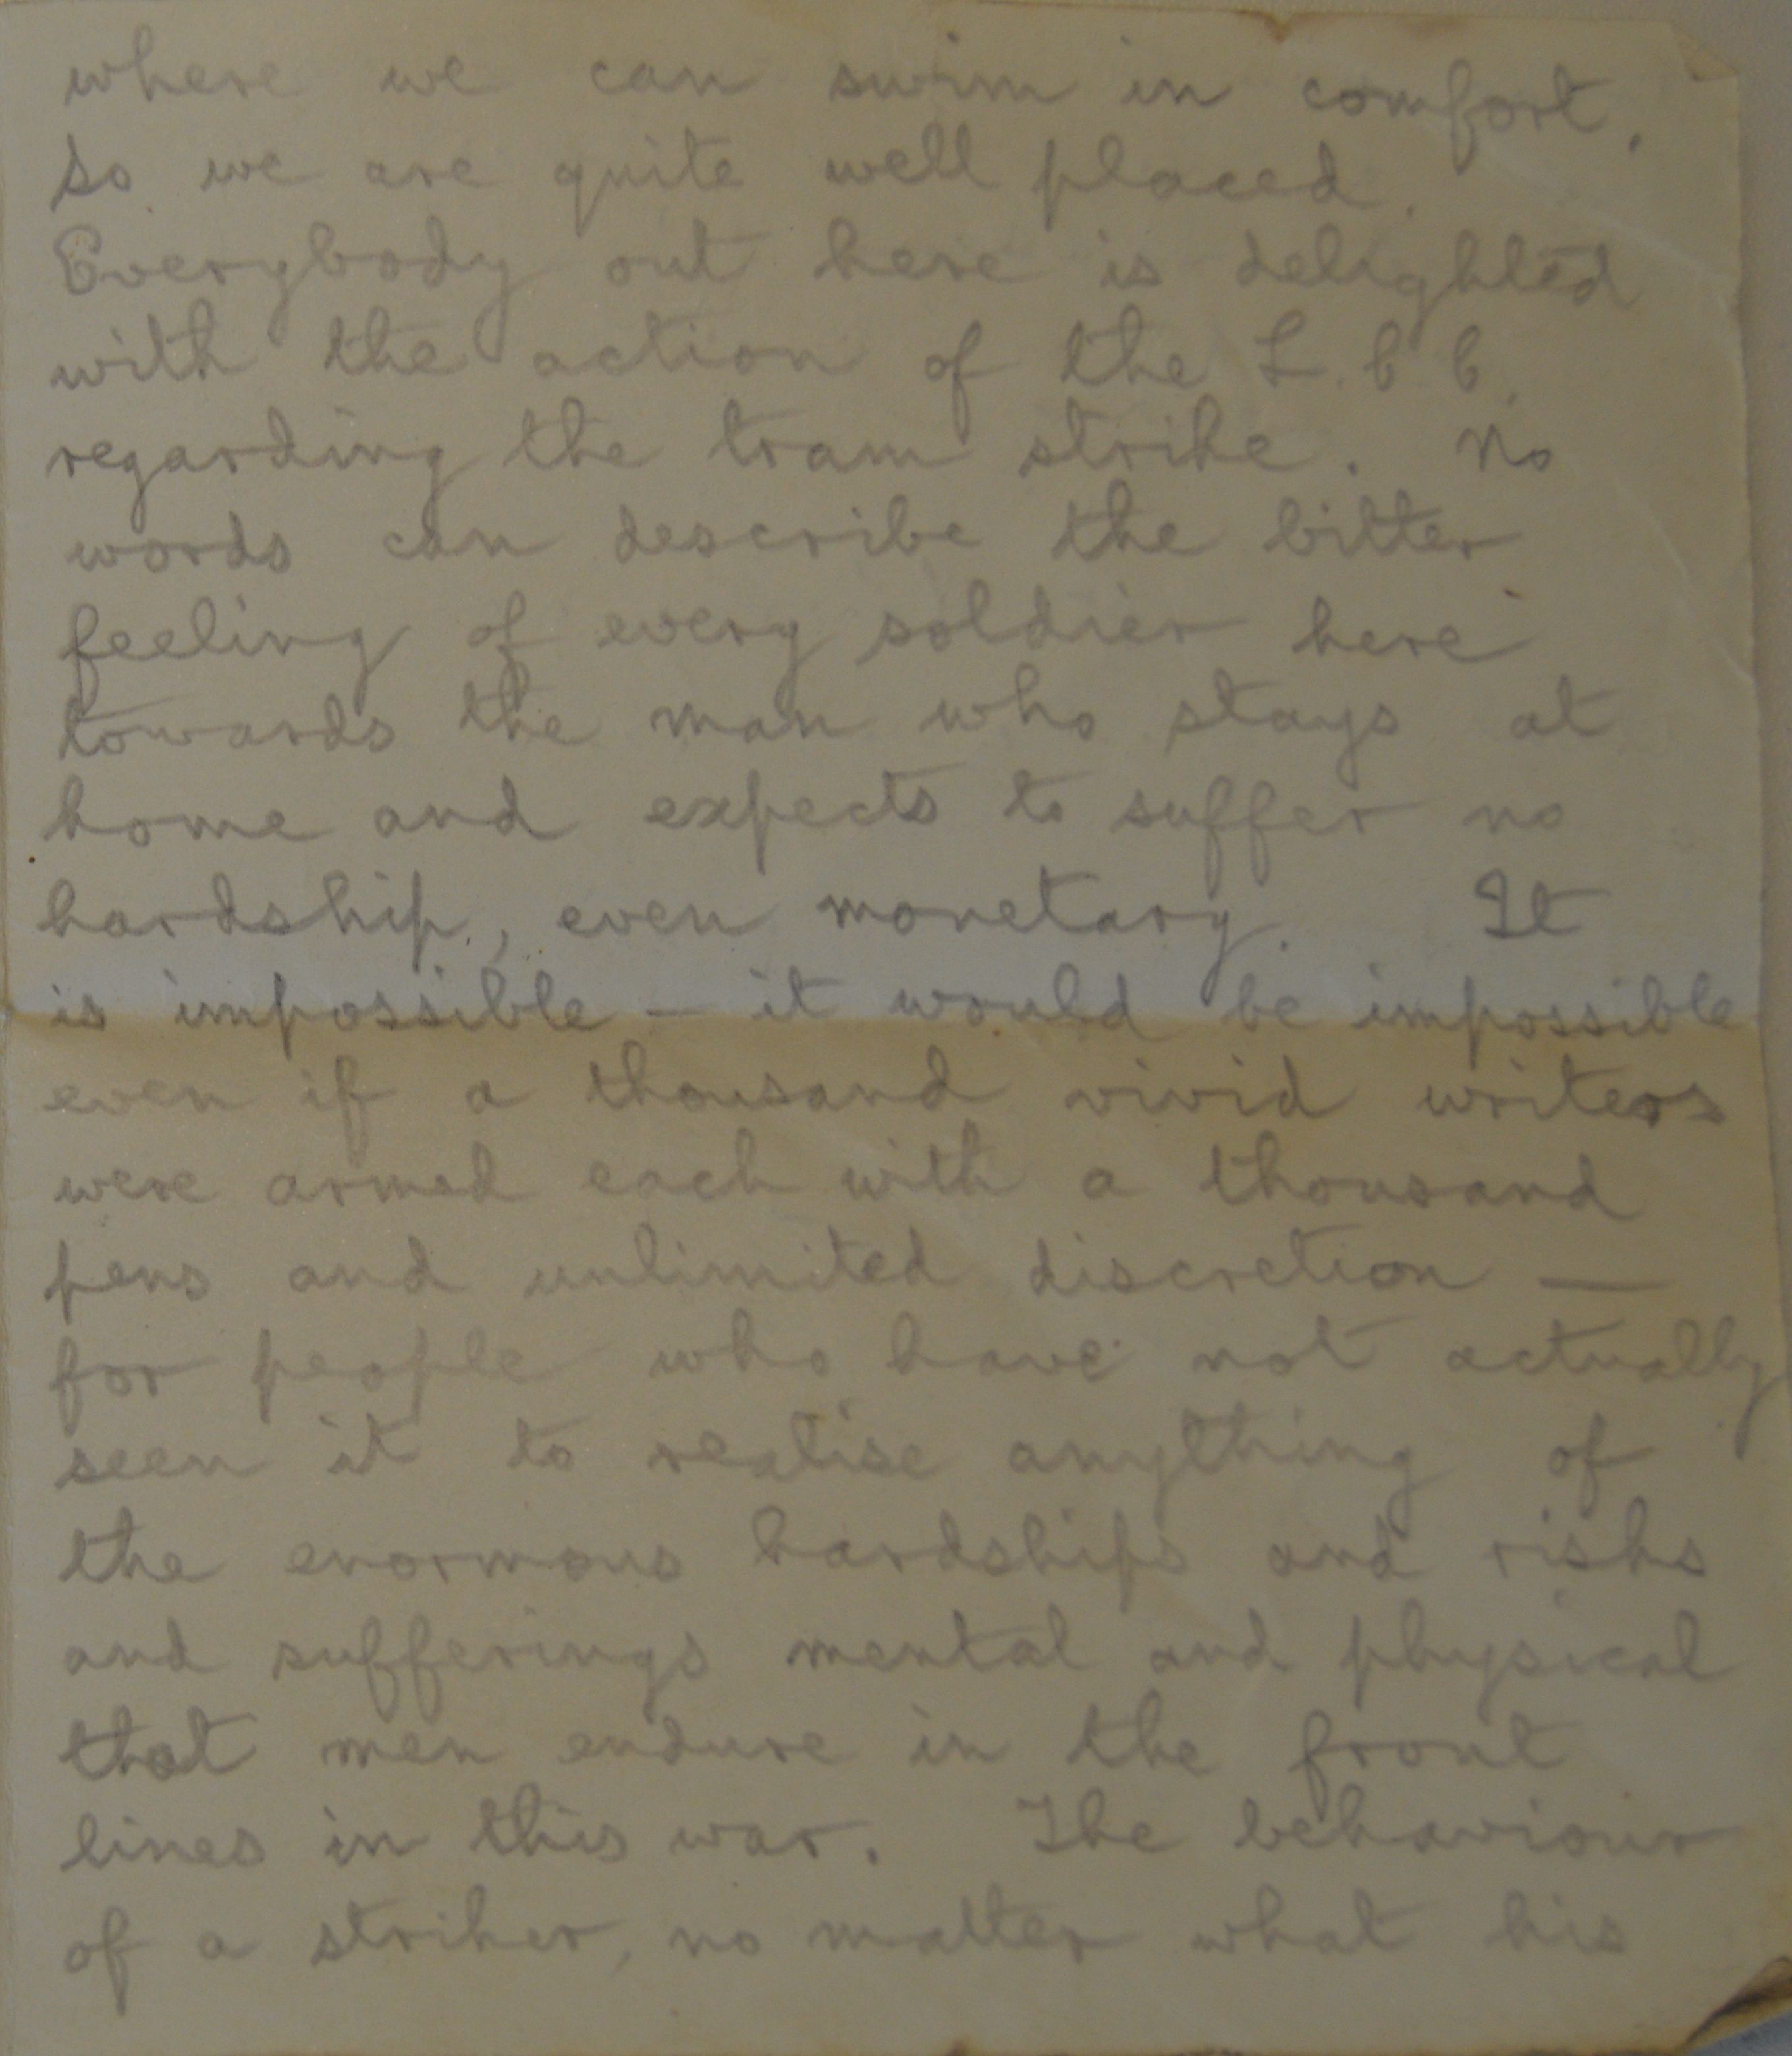 where we can swim in comfort,
so we are quite well placed.
Everybody out here is delighted
with the action of the L.C.C.
regarding the tram strike. No
words can describe the bitter
feeling of every soldier here
towards the man who stays at
home and expects to suffer no
hardship, even monetary. It
is impossible – it would be impossible
even if a thousand vivid writers
were armed each with a thousand
pens and unlimited discretion —
for people who have not actually
seen it to realise anything of
the enormous hardships and risks
and sufferings mental and physical
that men endure in the front
lines in this war. The behaviour
of a striker, no matter what his